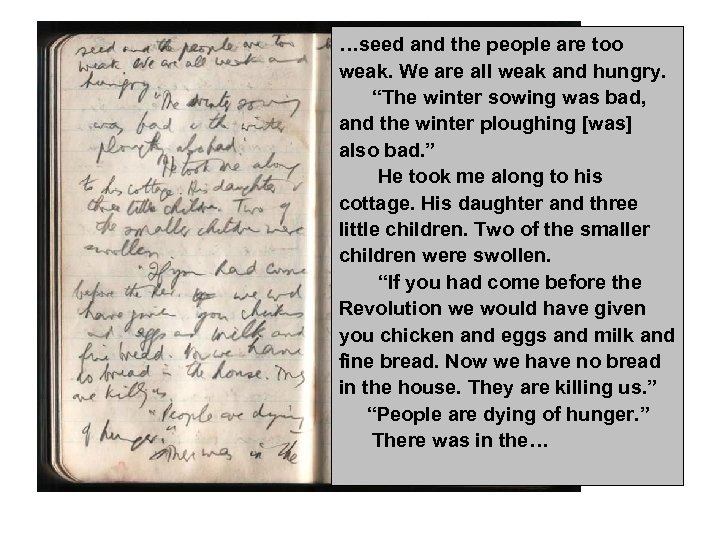 seed and the people are too
weak. We are all weak and
hungry.
"The winter sowing
was bad & the winter
ploughing also bad."
He took me along
to his cottage. His daughter &
three little children. Two of
the smaller children were
swollen.
"If you had come
before the Rev. we wd
have given you chicken
and eggs and milk and
fine bread. Now we have
no bread in the house. They
are killing us."
"People are dying
of hunger."
There was in the
…seed and the people are too
weak. We are all weak and hungry.
“The winter sowing was bad,
and the winter ploughing [was]
also bad.”
He took me along to his
cottage. His daughter and three
little children. Two of the smaller
children were swollen.
“If you had come before the
Revolution we would have given
you chicken and eggs and milk and
fine bread. Now we have no bread
in the house. They are killing us.”
“People are dying of hunger.”
There was in the…